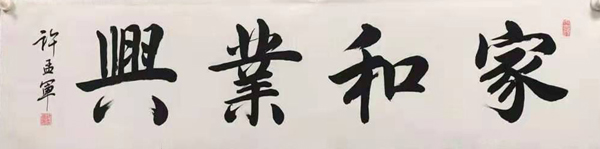 家和業興
許孟軍